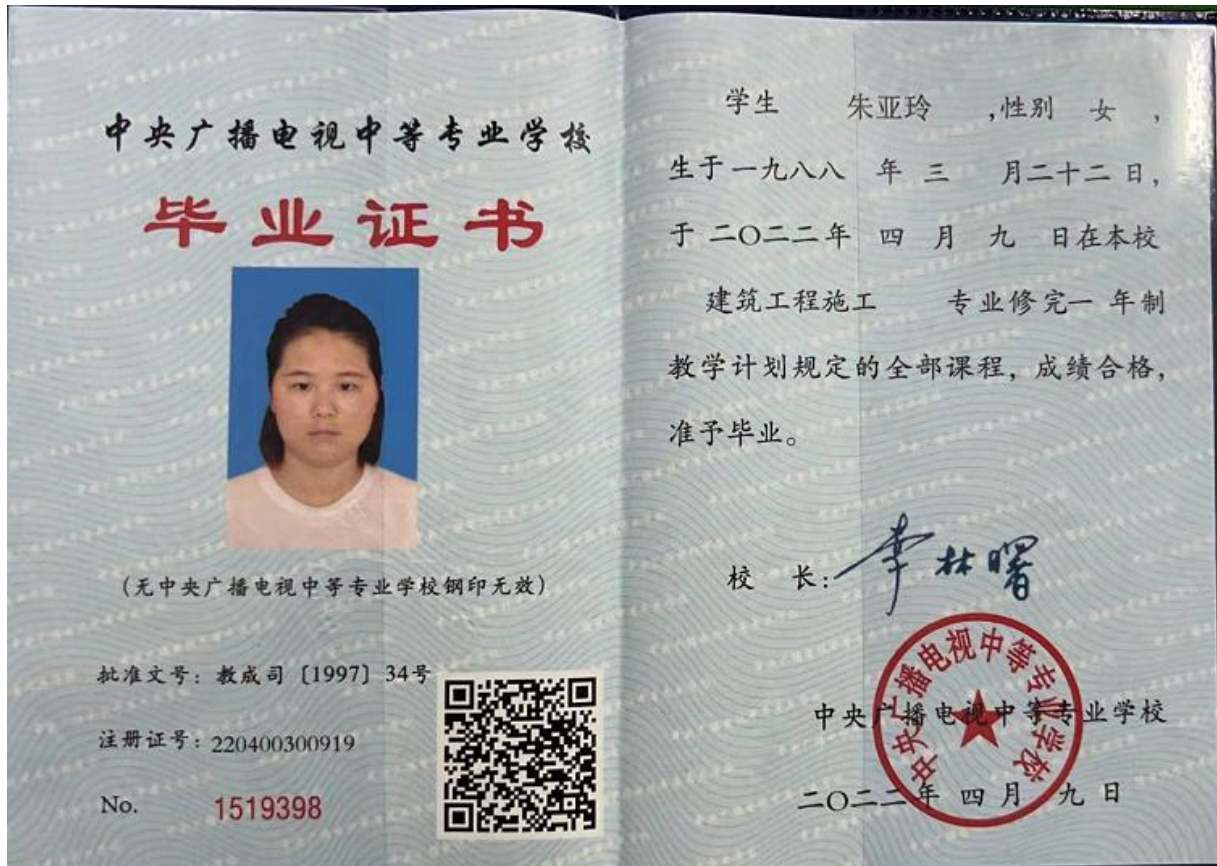 中央广播电视中等专业学校
毕业证书
(无中央广播电视中等专业学校钢印无效)
批准文号：教成司〔1997〕34号
注册证号：220400300919
No. 1519398
学生 朱亚玲 ,性别 女 ,
生于一九八八 年 三 月二十二 日,
于 二〇二二年 四 月 九 日在本校
建筑工程施工 专业修完一 年制
教学计划规定的全部课程，成绩合格，
准予毕业。
校 长: 李林曙
中央广播电视中等专业学校
中央广播电视中等专业学校
二〇二二年 四 月 九 日